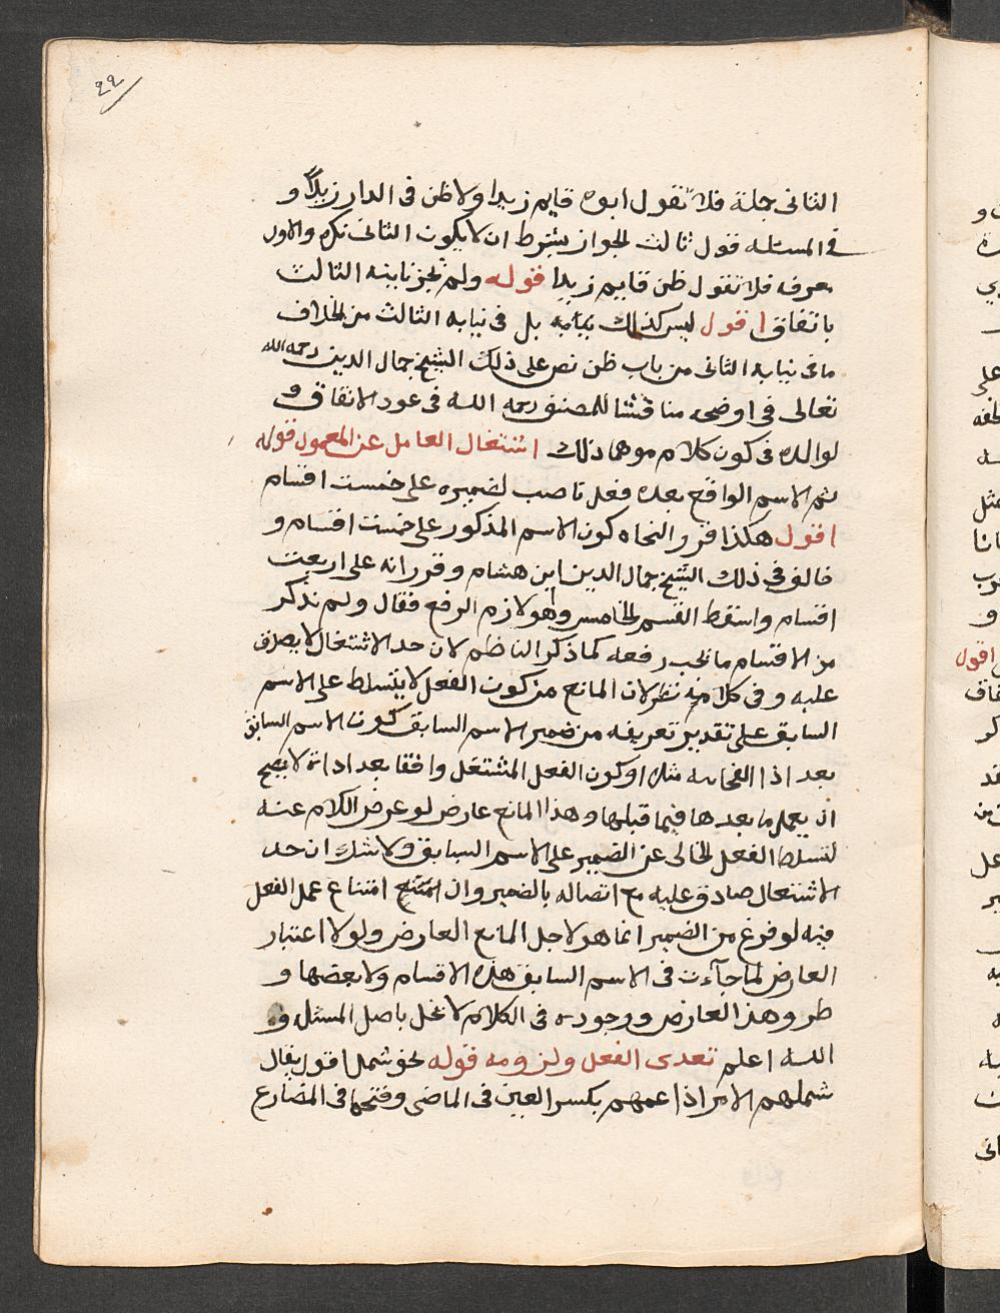 ٢٢
الثانى جملة فلا تقول ابوه قايم زيدا ولا ظن فى الدار زيدا و
فى المسئله قول ثالث الجواز بشرط ان لا يكون الثانى نكره والاول
معرفه فلا تقول ظن قايم زيدا قوله ولم تجز نيابة الثالث
باتفاق اقول ليس كذلك بل فى نيابه الثالث من الخلاف
ما فى نيابه الثانى من باب ظن نص على ذلك الشيخ جمال الدين رحمه الله
تعالى فى اوضحه مناقشا للمصنف رحمه الله فى عود الاتفاق و
لوالده فى كون كلام موهما ذلك اشتغال العامل عن المعمول قوله
ثم الاسم الواقع بعده فعل ناصب لضميره على خمست اقسام
اقول هكذا قرر النحاه كون الاسم المذكور على خمست اقسام و
خالف فى ذلك الشيخ جمال الدين ابن هشام وقرر انه على اربعت
اقسام واسقط القسم الخامس وهو لازم الرفع فقال ولم نذكر
من الاقسام ما يجب رفعه كما ذكر الناظم لان حد الاشتغال لا يصدق
عليه وفى كلامه نظر لان المانع من كون الفعل لا يتسلط على الاسم
السابق على تقدير تعريفه من ضمير الاسم السابق كون الاسم السابق
بعد اذا الفجايه مثلا او كون الفعل المشتغل واقعا بعد اداة لا يصح
ان يعمل ما بعدها فيما قبلها وهذا المانع عارض لو عرض الكلام عنه
لتسلط الفعل الخالى عن الضمير على الاسم السابق ولا شك ان حد
الاشتغال صادق عليه مع اتصاله بالضمير وان امتناع عمل الفعل
فيه لو فرغ من الضمير انما هو لاجل المانع العارض ولولا اعتبار
العارض لما جآءت فى الاسم السابق هذه الاقسام ولا بعضها و
طرو هذا العارض ووجوده فى الكلام لا يخل باصل المسئله و
الله اعلم تعدى الفعل ولزومه قوله نحو شمل اقول يقال
شملهم الامر اذا عمهم بكسر العين فى الماضى وفتحها فى المضارع